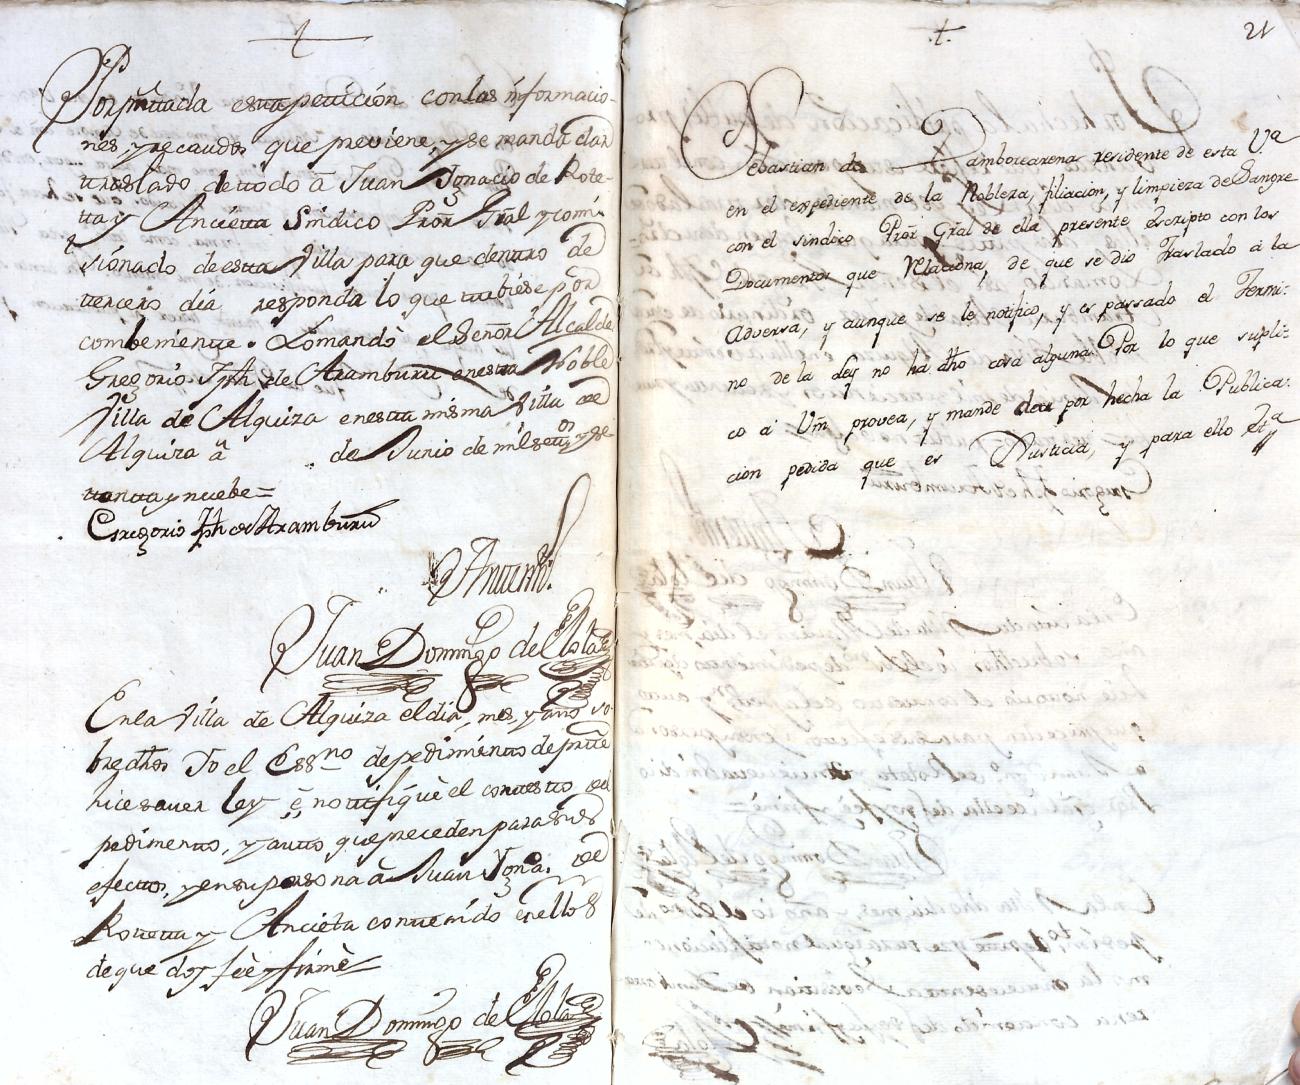 Por presentada esta peticion con las informacio-
nes, y recaudos que previene, y se manda dar
traslado de todo â Juan Ignacio de Rote-
ta y Ancieta Sindico Pror Gral y comi-
sionado de esta Villa para que dentro de
tercero dia responda lo que tubiese por
combeniente. Lo mandò el Señor Alcalde
Gregorio Jph de Aramburu en esta Noble
Villa de Alquiza en esta misma Villa de
Alquiza â de Junio de mil settos y se
tenta y nuebe=
Gregorio Jph de Aramburu
Antemi
Juan Domingo de Elola
En la Villa de Alquiza el dia, mes, y año so-
bre dhos Yo el Essno de pedimiento de parte
hice sauer ley ê notifiquè el contexto del
pedimento, y auto que preceden para sus
efectos, y en su persona â Juan Igno. de
Roteta y Ancieta contenido en ellos
de que doy feè y firmè
Juan Domingo de Elola
21
Sebastian de Zamborearena residente de esta Va
en el expediente de la Nobleza, filiacion, y limpieza de Sangre
con el sindico Pror Gral de ella presente Escripto con los
Documentos que Relaciona, de que se dio Traslado a la
adversa, y aunque se le notifico, y es passado el Termi-
no de la Ley no ha dho cosa alguna Por lo que supli-
co a Vm provea, y mande dar por hecha la Publica-
cion pedida que es Justicia, y para ello Eta